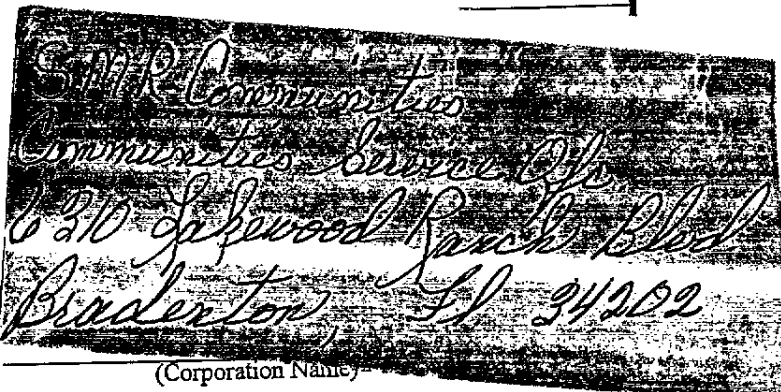 SMR Communities
Communities Service Ofc.
6310 Lakewood Ranch Blvd
Bradenton, Fl 34202
(Corporation Name)